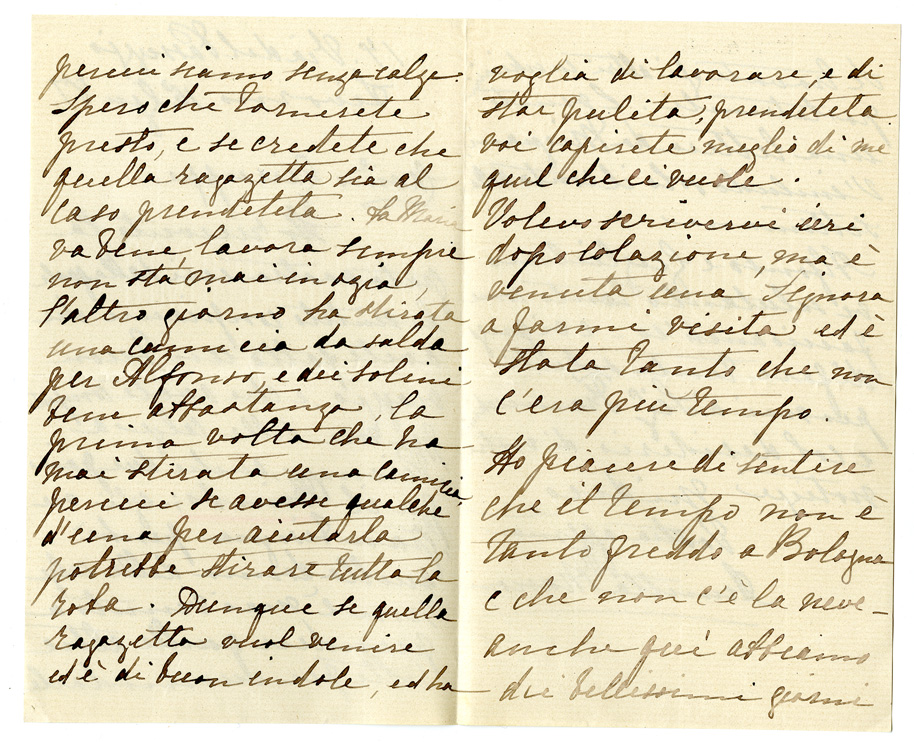 percui siamo senza calze.
Spero che tornerete
presto, e se credete che
quella ragazetta sia al
caso prendetela. La Maria
va bene, lavora sempre
non stà mai in ozia,
l'altro giorno ha stirata
una camicia da salda
per Alfonso, e dei solini
bene abbastanza, la
prima volta che ha
mai stirata una camicia,
percui se avesse qualche
d'una per aiutarla
potrebbe stirare tutta la
roba. Dunque se quella
ragazetta vuol venire
ed è di buon indole, ed ha
voglia di lavorare, e di
star pulita, prendetela.
voi capirete meglio di me
quel che ci vuole.
Volevo scrivervi ieri
dopo colazione, ma è
venuta una Signora
a farmi visita ed è
stata tanto che non
c'era più tempo.
Ho piacere di sentire
che il tempo non è
tanto freddo a Bologna
e che non c'è la neve-
anche qui abbiamo
dei bellissimi giorni